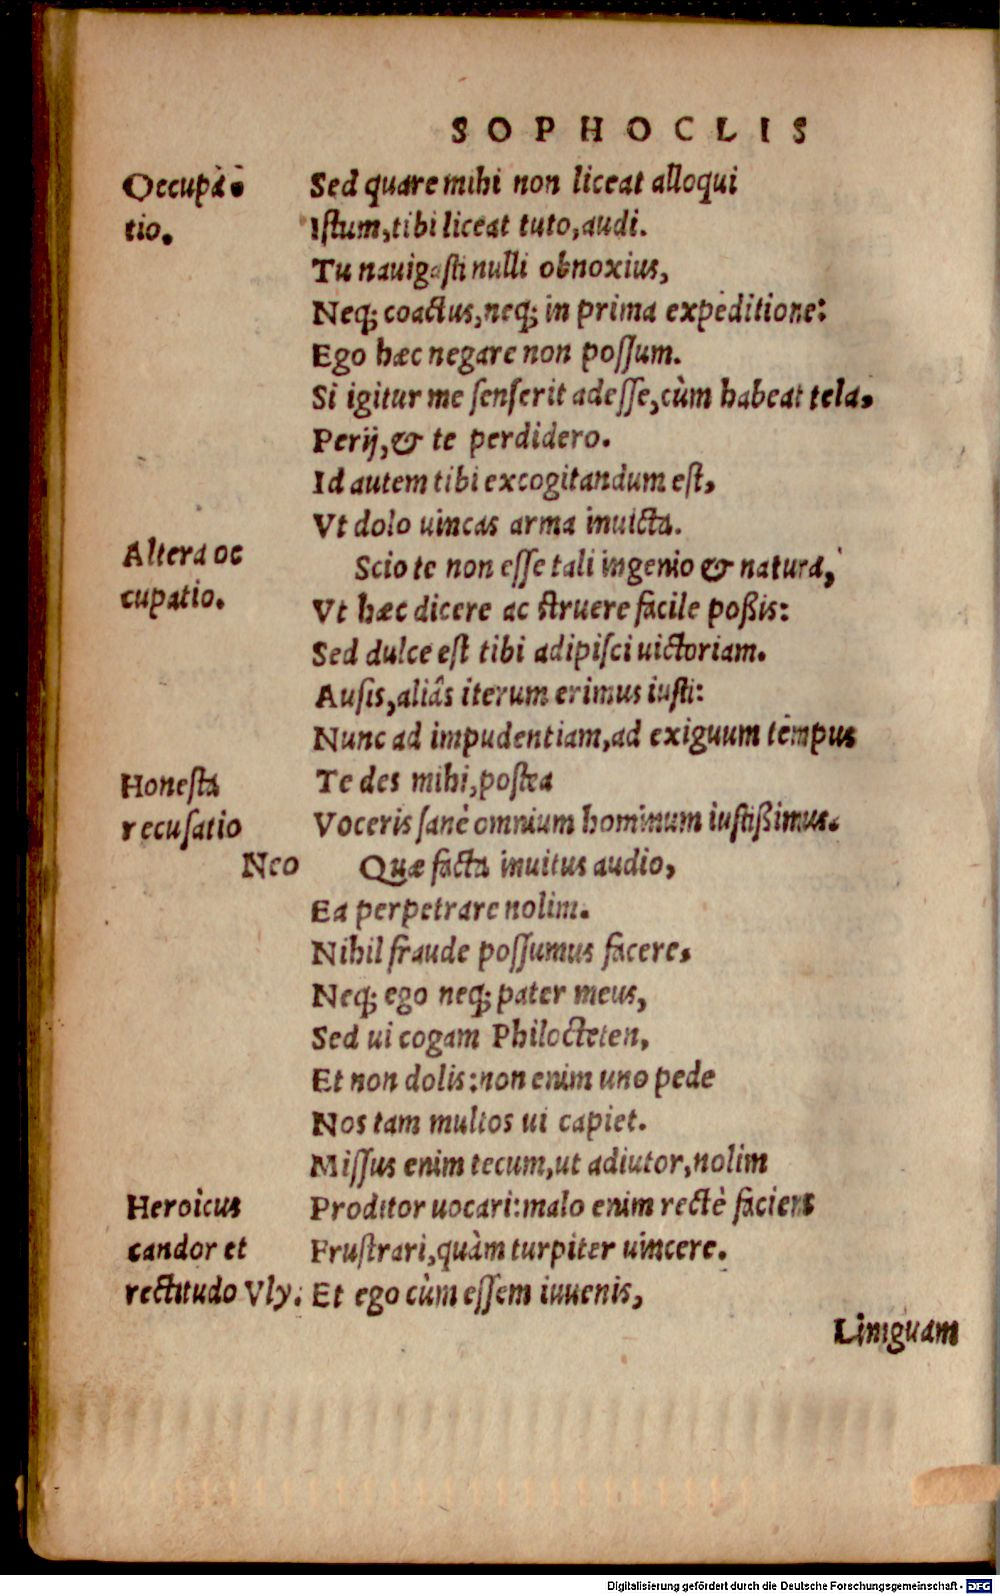 SOPHOCLIS
Occupa-
tio.
Sed quare mihi non liceat alloqui
Istum, tibi liceat tuto, audi.
Tu nauigasti nulli obnoxius,
Neq; coactus, neq; in prima expeditione:
Ego hæc negare non possum.
Si igitur me senserit adesse, cùm habeat tela,
Perij, & te perdidero.
Id autem tibi excogitandum est,
Vt dolo uincas arma inuicta.
Altera oc
cupatio.
Scio te non esse tali ingenio & natura,
Vt hæc dicere ac struere facile poßis:
Sed dulce est tibi adipisci uictoriam.
Ausis, aliâs iterum erimus iusti:
Nunc ad impudentiam, ad exiguum tempus
Honesta
recusatio
Te des mihi, postea
Voceris sanè omnium hominum iustißimus.
Neo Quæ facta inuitus audio,
Ea perpetrare nolim.
Nihil fraude possumus facere,
Neq; ego neq; pater meus,
Sed ui cogam Philocteten,
Et non dolis: non enim uno pede
Nos tam multos ui capiet.
Missus enim tecum, ut adiutor, nolim
Heroicus
candor et
rectitudo Vly.
Proditor uocari: malo enim rectè faciens
Frustrari, quàm turpiter uincere.
Et ego cùm essem iuuenis,
Linguam
Digitalisierung gefördert durch die Deutsche Forschungsgemeinschaft - DFG